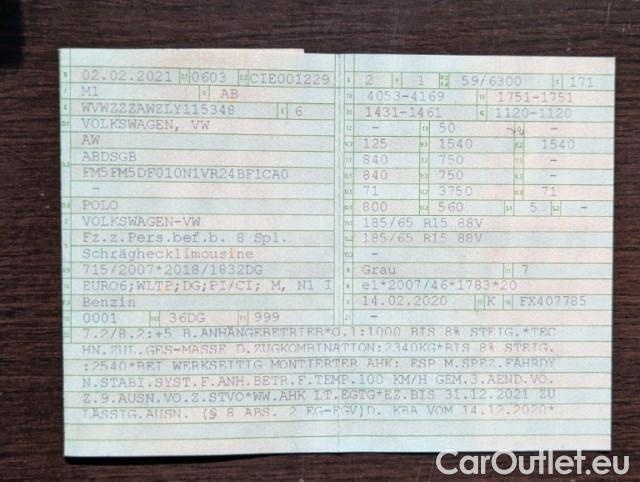 02.02.2021 0603 CIE001229
M1 AB
WVWZZZAWZLY115348 6
VOLKSWAGEN, VW
AW
ABDSGB
FM5FM5DF010N1VR24BF1CA0
-
POLO
VOLKSWAGEN-VW
Fz.z.Pers.bef.b. 8 Spl.
Schräghecklimousine
715/2007*2018/1832DG
EURO6;WLTP;DG;PI/CI; M, N1 I
Benzin
0001 36DG 999
2 1 59/6300 171
4053-4169 1751-1751
1431-1461 1120-1120
- 50 -
125 1540 1540
840 750 -
840 750 -
71 3750 71
800 560 5 -
185/65 R15 88V
185/65 R15 88V
-
Grau 7
e1*2007/46*1783*20
14.02.2020 K FX407785
-
7.2/8.2:+5 B.ANHÄNGEBETRIEB*O.1:1000 BIS 8% STEIG.*TEC
HN.ZUL.GES-MASSE D.ZUGKOMBINATION:2340KG*BIS 8% STEIG.
:2540*BEI WERKSEITIG MONTIERTER AHK: ESP M.SPEZ.FAHRDY
N.STABI.SYST.F.ANH.BETR.F.TEMP.100 KM/H GEM.3.AEND.VO.
Z.9.AUSN.VO.Z.STVO*WW.AHK LT.EGTG*EZ.BIS 31.12.2021 ZU
LÄSSIG.AUSN. (§ 8 ABS. 2 EG-FGV)D. KBA VOM 14.12.2020*
CarOutlet.eu